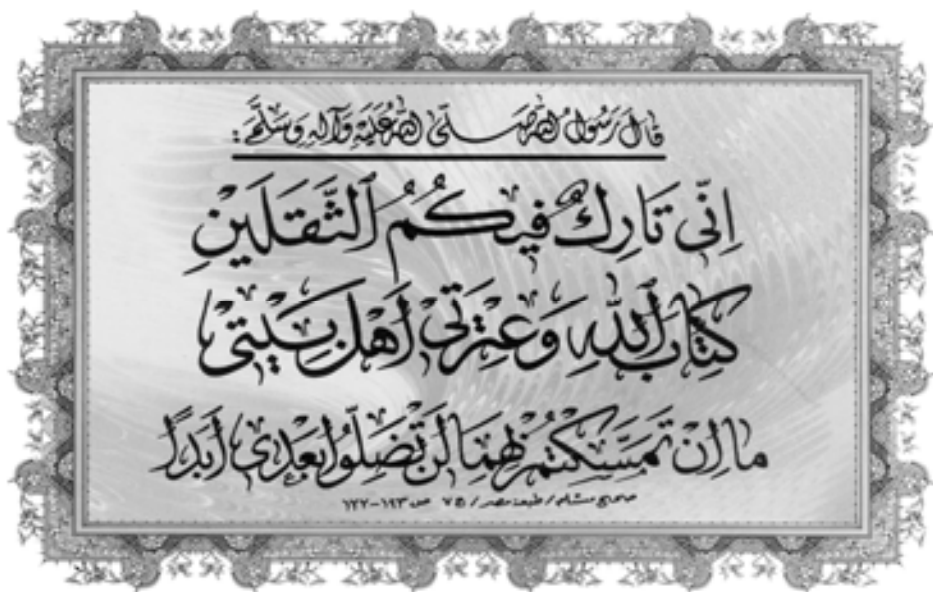 قَالَ رَسُولُ اللهِ صَلَّى اللهُ عَلَيْهِ وَآلِهِ وَسَلَّمَ:
اِنّی تَارِكٌ فيكُمُ الثَّقَلَيْنِ
كِتَابَ اللهِ وَعِتْرَتی اَهْلَ بَيْتی
ما اِنْ تَمَسَّكْتُمْ بِهِمَا لَنْ تَضِلّوُا بَعْدی اَبَدًا
صحیح مسلم / طبعة مصر / ج ٧ ص